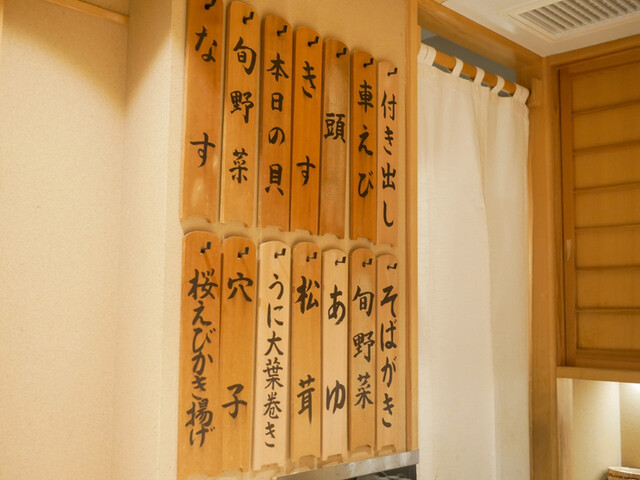 付き出し
車えび
頭
きす
本日の貝
旬野菜
なす
そばがき
旬野菜
あゆ
松茸
うに大葉巻き
穴子
桜えびかき揚げ